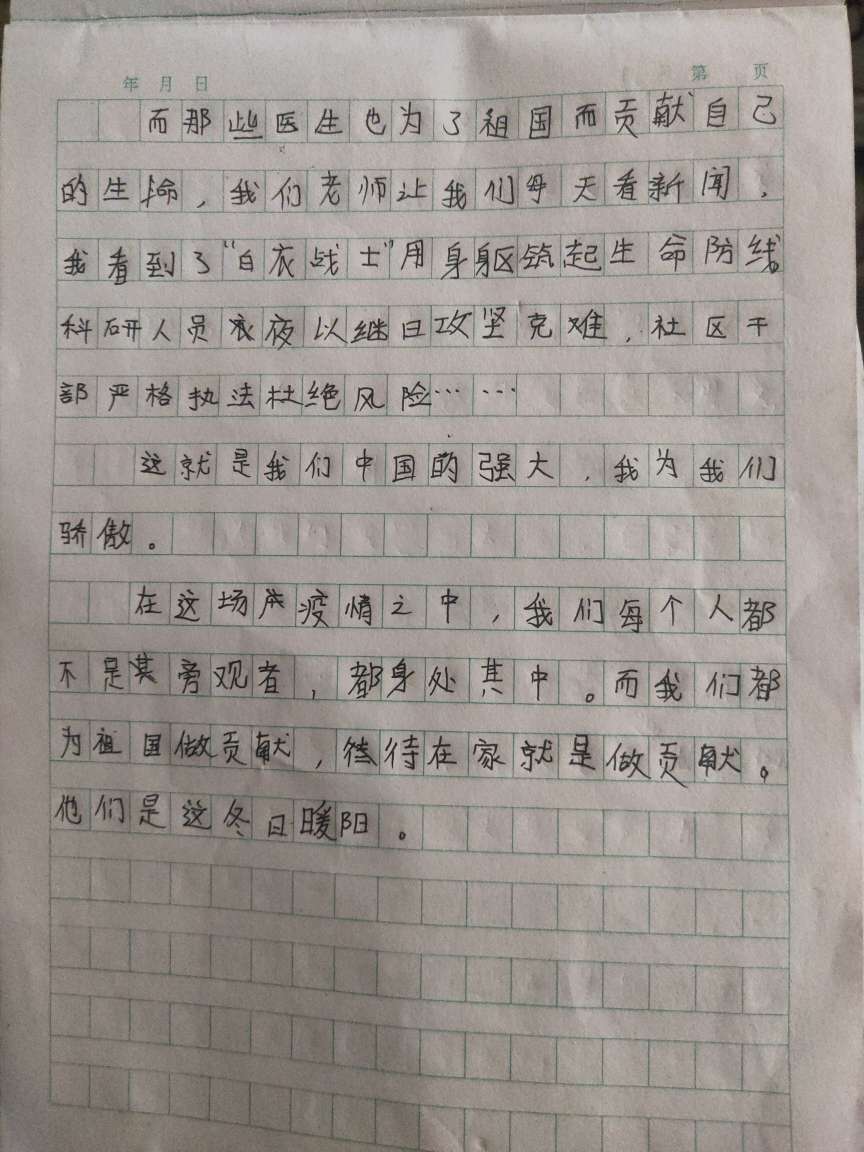 年 月 日 第 页
而那些医生也为了祖国而贡献自己
的生命，我们老师让我们每天看新闻，
我看到了“白衣战士”用身躯筑起生命防线。
科研人员衣夜以继日攻坚克难，社区干
部严格执法杜绝风险……
这就是我们中国的强大，我为我们
骄傲。
在这场疫情之中，我们每个人都
不是其旁观者，都身处其中。而我们都
为祖国做贡献，待在家就是做贡献。
他们是这冬日暖阳。